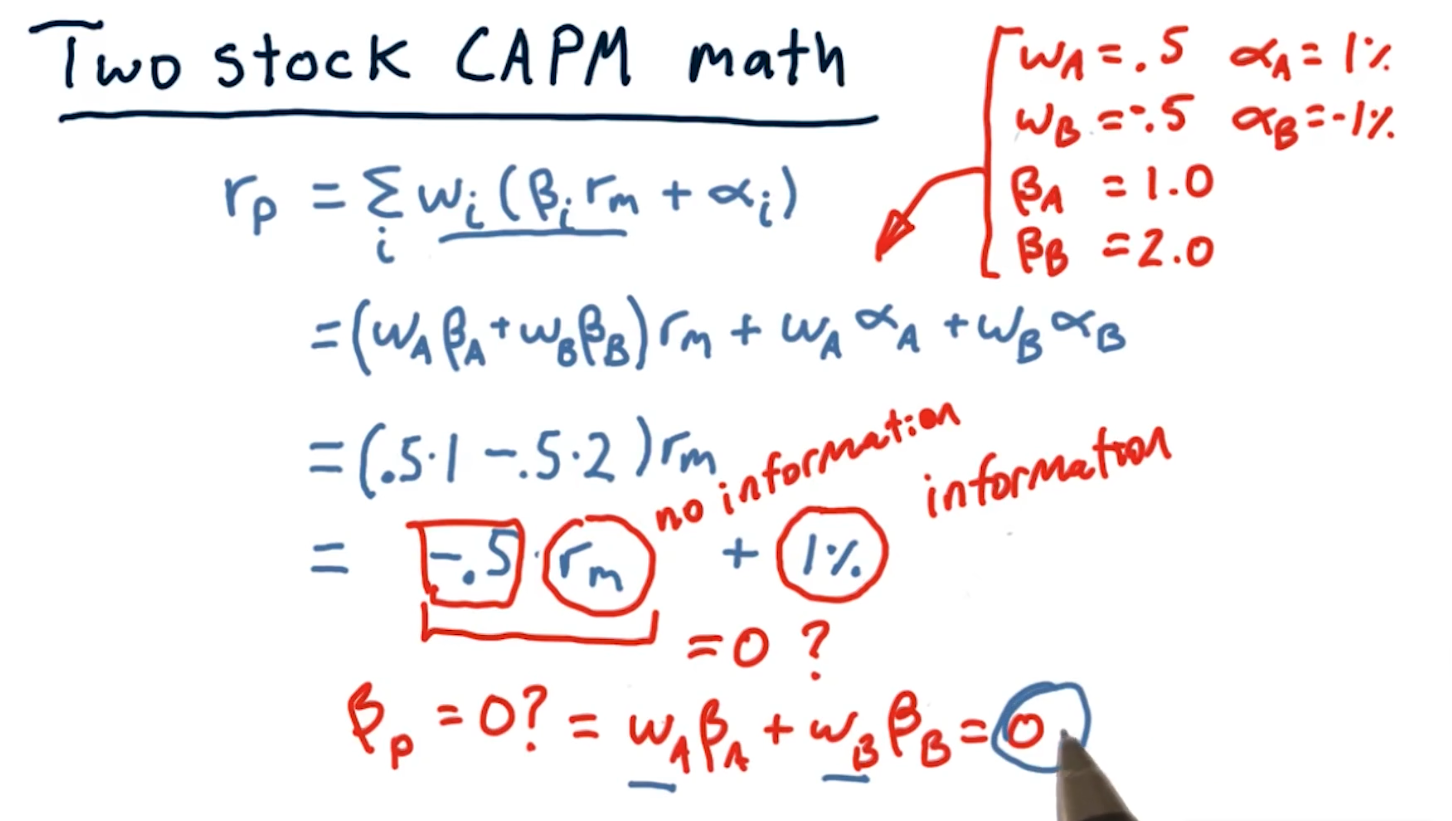 Two stock CAPM math
wA = .5 αA = 1%
wB = -.5 αB = -1%
βA = 1.0
βB = 2.0
rp = Σi wi (βi rm + αi)
= (wA βA + wB βB) rm + wA αA + wB αB
= (.5·1 - .5·2) rm
no information
information
= -.5 · rm + 1%
= 0 ?
βp = 0? = wA βA + wB βB = 0